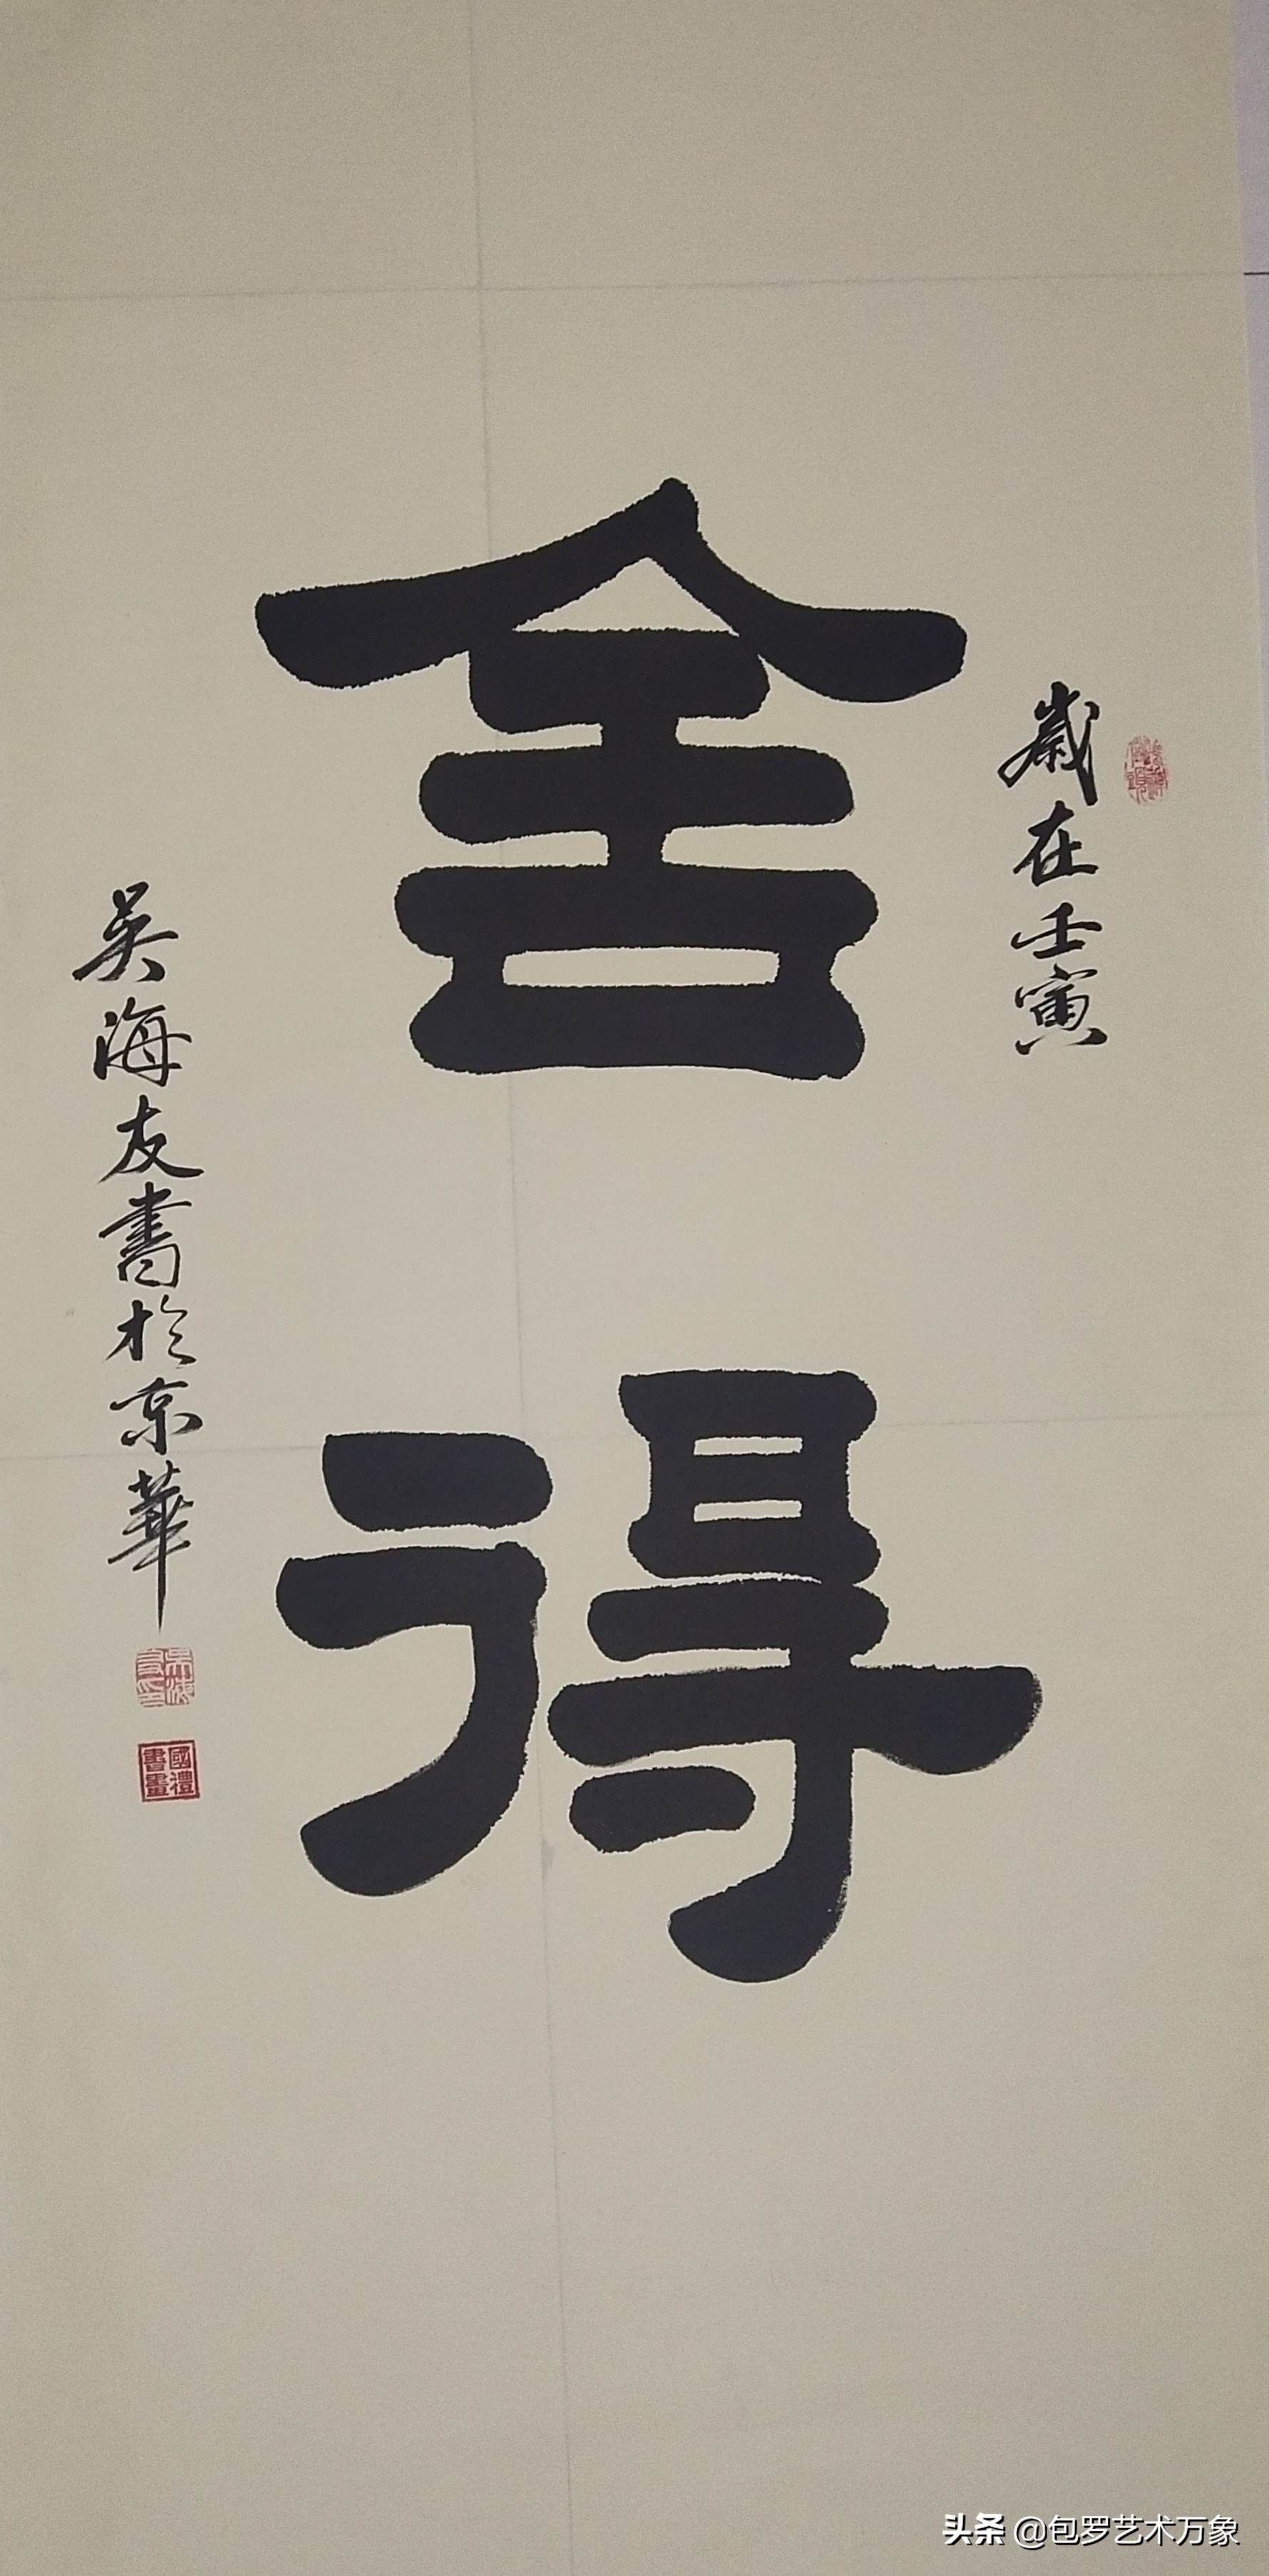 歲在壬寅
舍得
吳海友書於京華
國禮書畫
头条 @包罗艺术万象